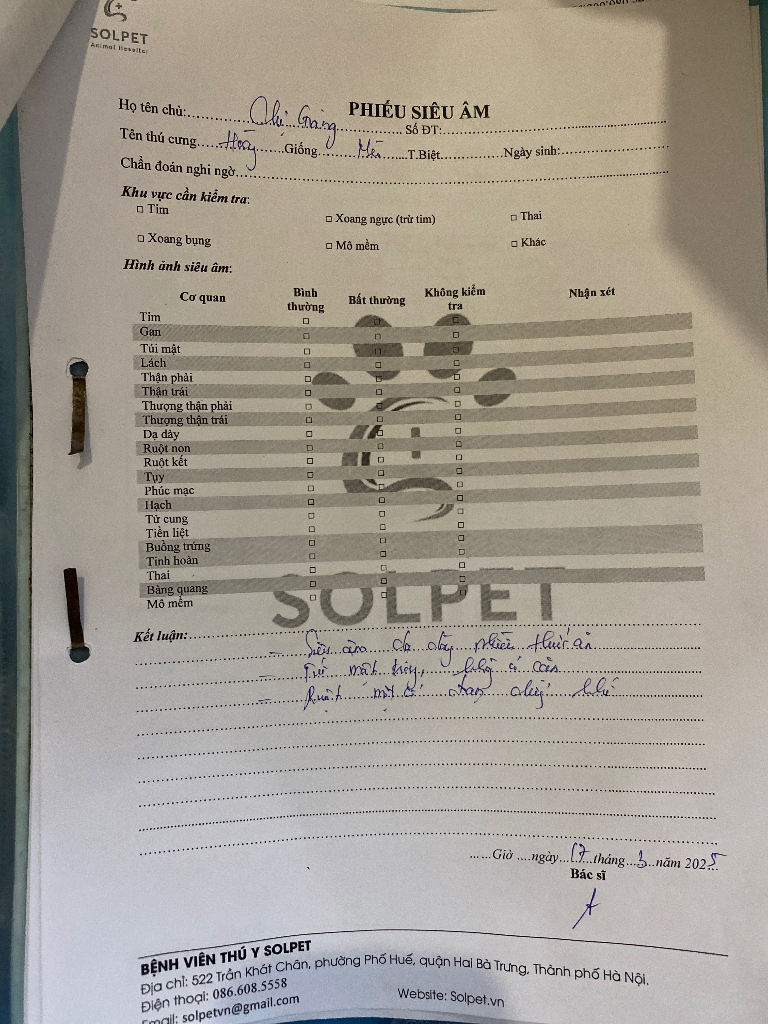 SOLPET
Animal Hospital
PHIẾU SIÊU ÂM
Họ tên chủ: Chị Giang Số ĐT:
Tên thú cưng Giống Mèo T.Biệt Ngày sinh:
Chẩn đoán nghi ngờ
Khu vực cần kiểm tra:
□ Tim □ Xoang ngực (trừ tim) □ Thai
□ Xoang bụng □ Mô mềm □ Khác
Hình ảnh siêu âm:
Cơ quan Bình thường Bất thường Không kiểm tra Nhận xét
Tim □ □ □
Gan □ □ □
Túi mật □ □ □
Lách □ □ □
Thận phải □ □ □
Thận trái □ □ □
Thượng thận phải □ □ □
Thượng thận trái □ □ □
Dạ dày □ □ □
Ruột non □ □ □
Ruột kết □ □ □
Tụy □ □ □
Phúc mạc □ □ □
Hạch □ □ □
Tử cung □ □ □
Tiền liệt □ □ □
Buồng trứng □ □ □
Tinh hoàn □ □ □
Thai □ □ □
Bàng quang □ □ □
Mô mềm □ □ □
SOLPET
Kết luận:
- Siêu âm dạ dày nhiều thức ăn
- Túi mật có cặn
- Ruột
Giờ ngày 17 tháng 3 năm 2025
Bác sĩ
BỆNH VIỆN THÚ Y SOLPET
Địa chỉ: 522 Trần Khát Chân, phường Phố Huế, quận Hai Bà Trưng, Thành phố Hà Nội.
Điện thoại: 086.608.5558
Email: solpetvn@gmail.com Website: Solpet.vn